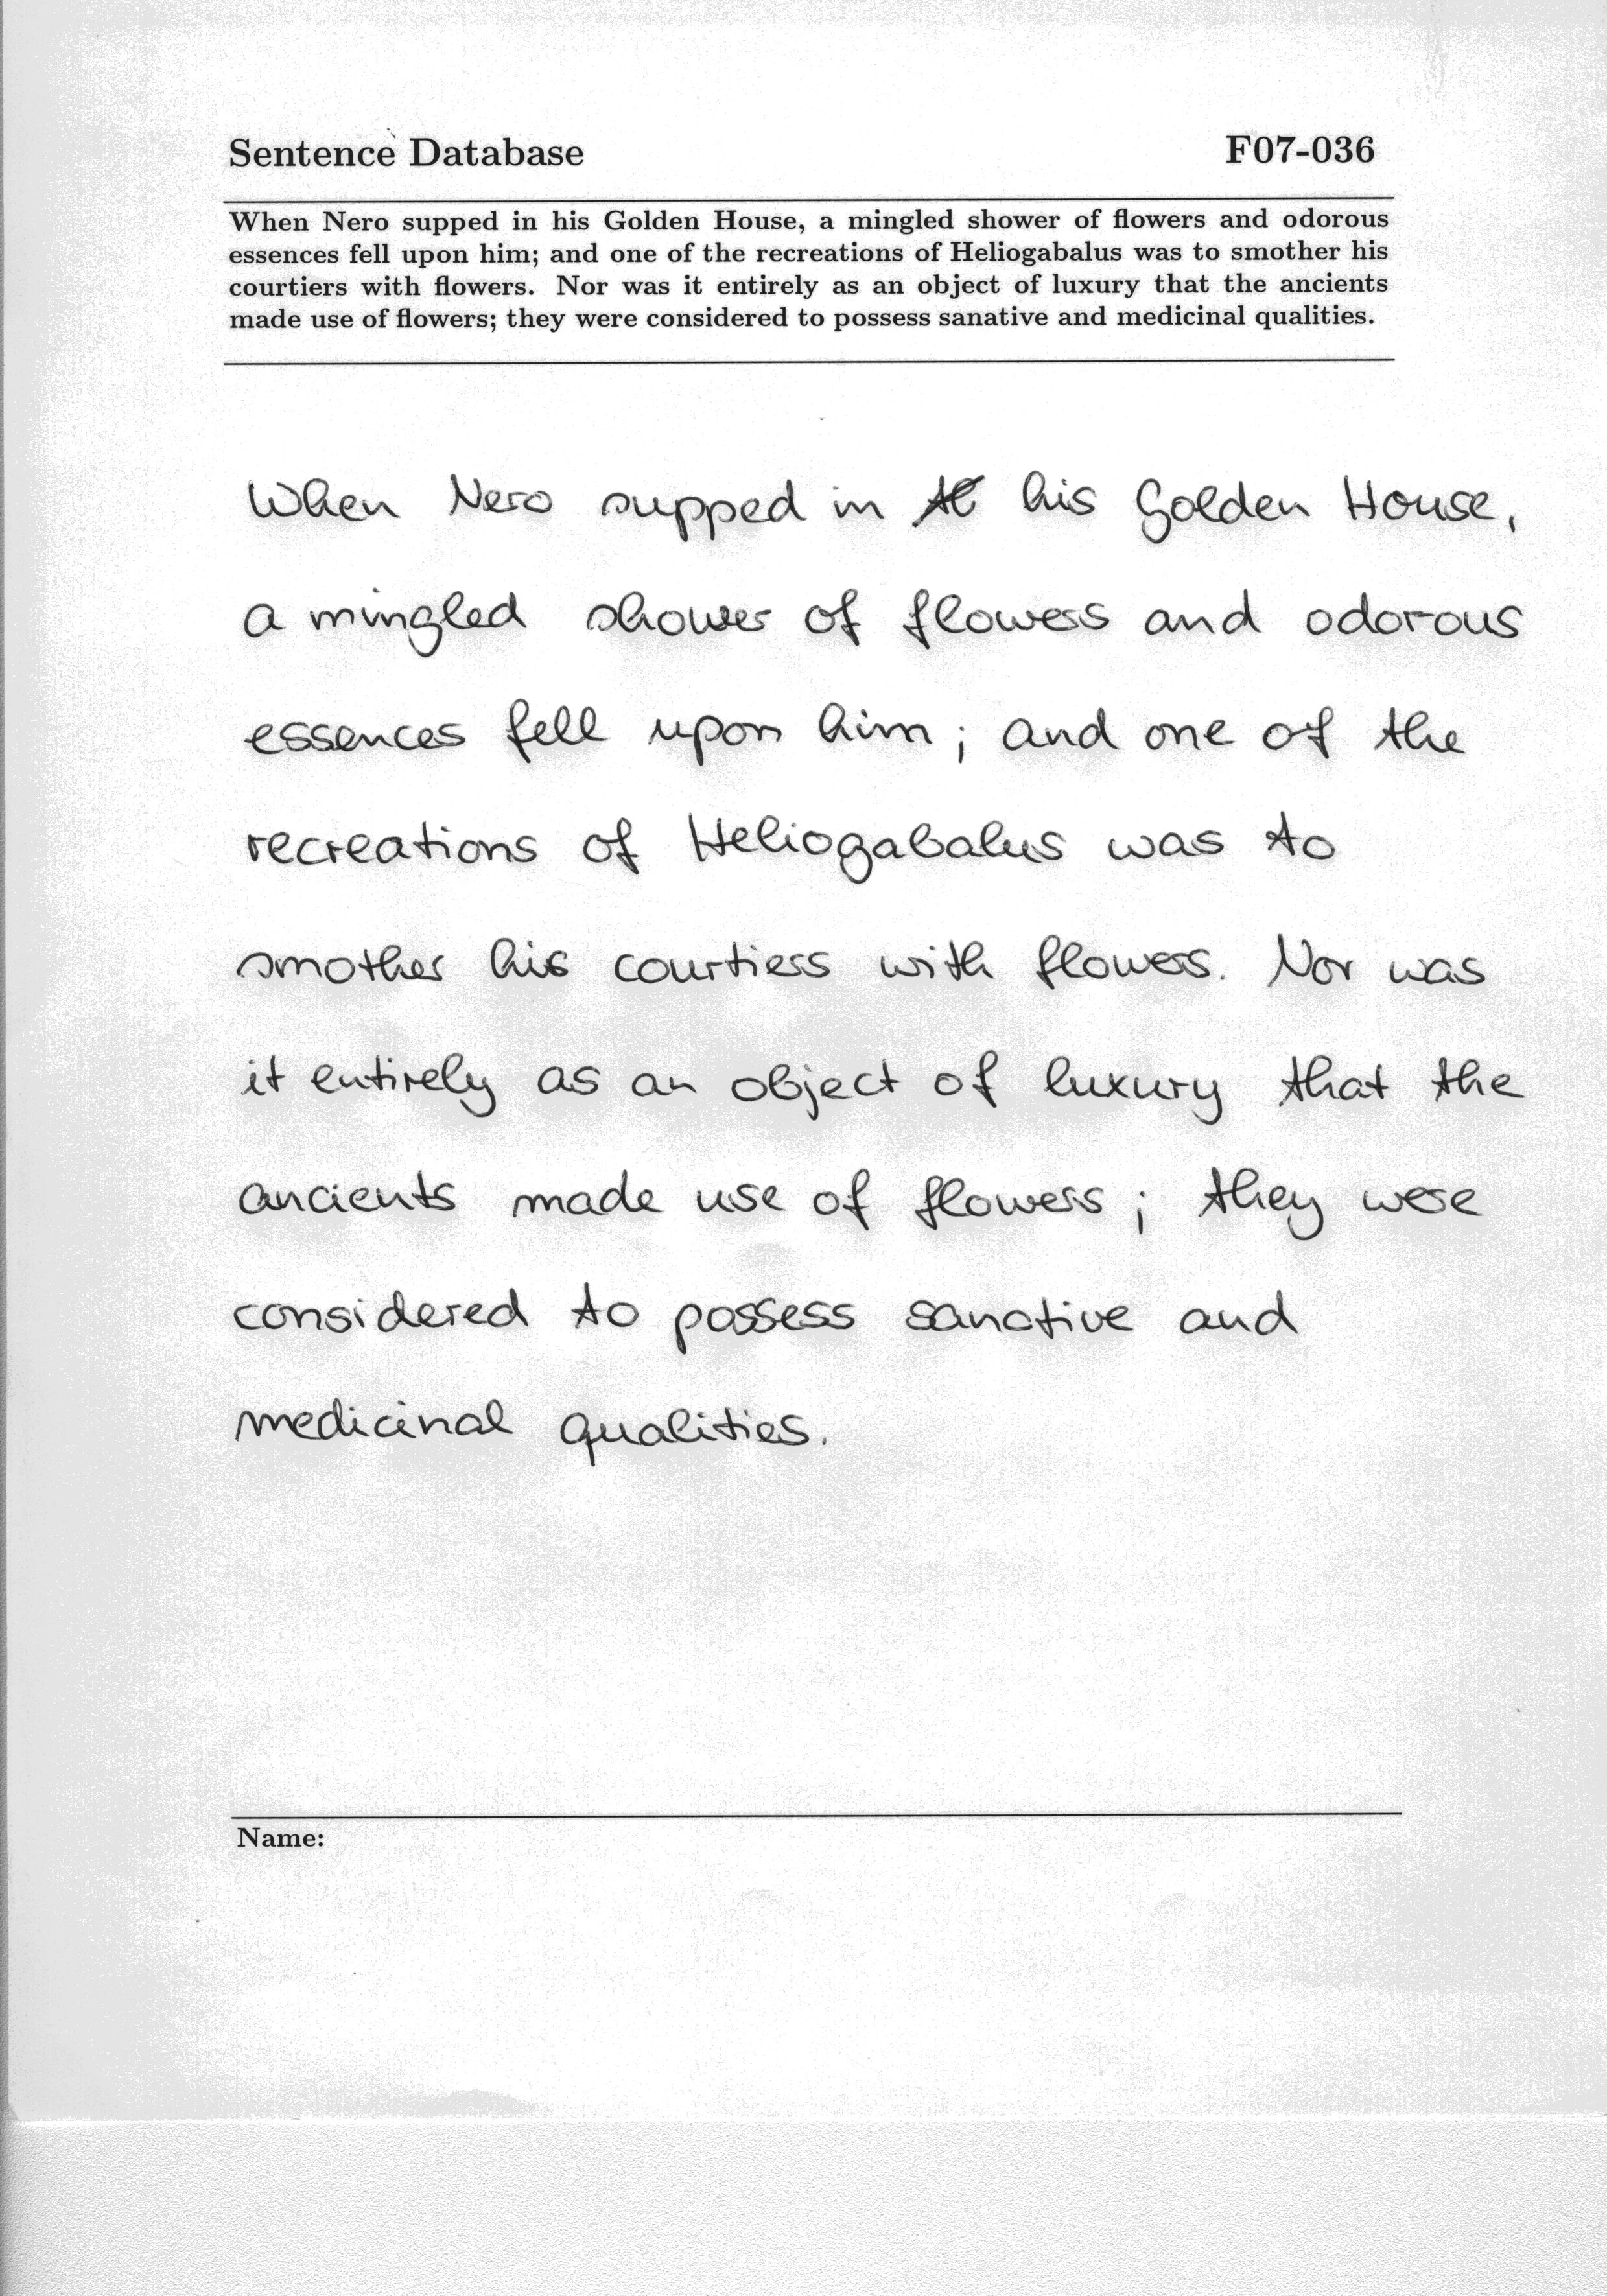 Sentence Database F07-036
When Nero supped in his Golden House, a mingled shower of flowers and odorous
essences fell upon him; and one of the recreations of Heliogabalus was to smother his
courtiers with flowers. Nor was it entirely as an object of luxury that the ancients
made use of flowers; they were considered to possess sanative and medicinal qualities.
When Nero supped in his Golden House,
a mingled shower of flowers and odorous
essences fell upon him; and one of the
recreations of Heliogabalus was to
smother his courtiers with flowers. Nor was
it entirely as an object of luxury that the
ancients made use of flowers; they were
considered to possess sanative and
medicinal qualities.
Name: